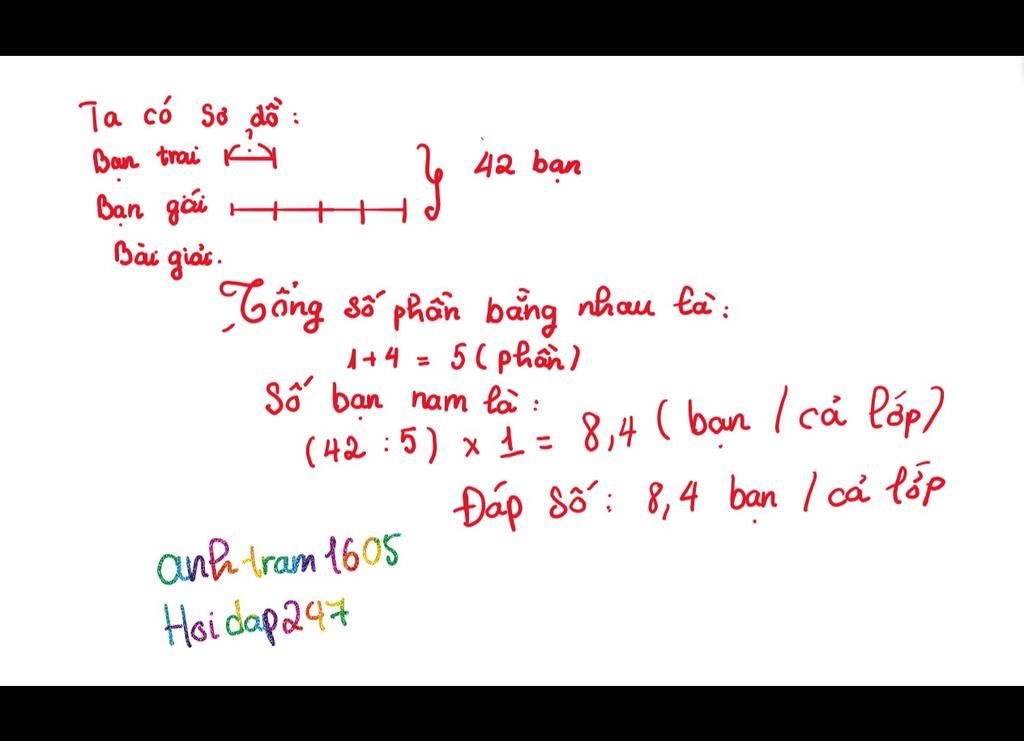 Ta có sơ đồ:
?
Bạn trai
42 bạn
Bạn gái
Bài giải.
Tổng số phần bằng nhau là:
1+4 = 5 (phần)
Số bạn nam là:
(42 : 5) x 1 = 8,4 (bạn / cả lớp)
Đáp số: 8,4 bạn / cả lớp
anhtram1605
Hoidap247